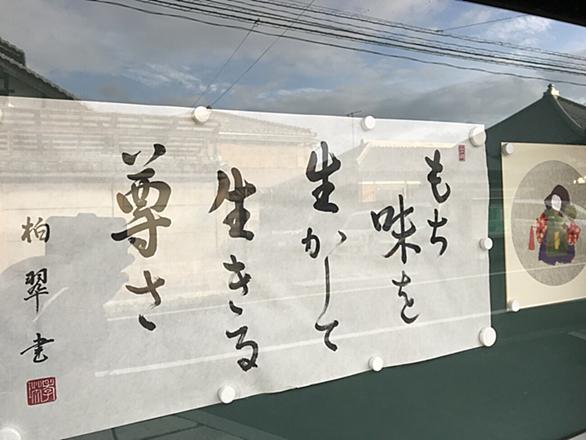 もち
味を
生かして
生きる
尊さ
柏翠書